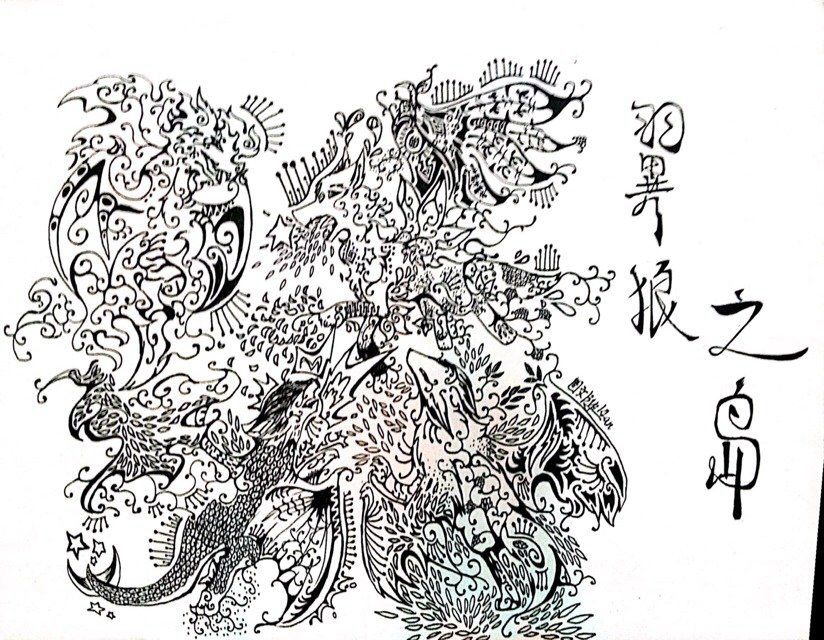 翼狼
之島